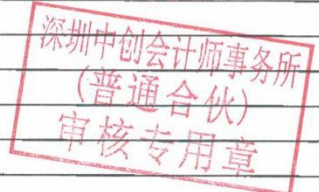 深圳中创会计师事务所
(普通合伙)
审核专用章